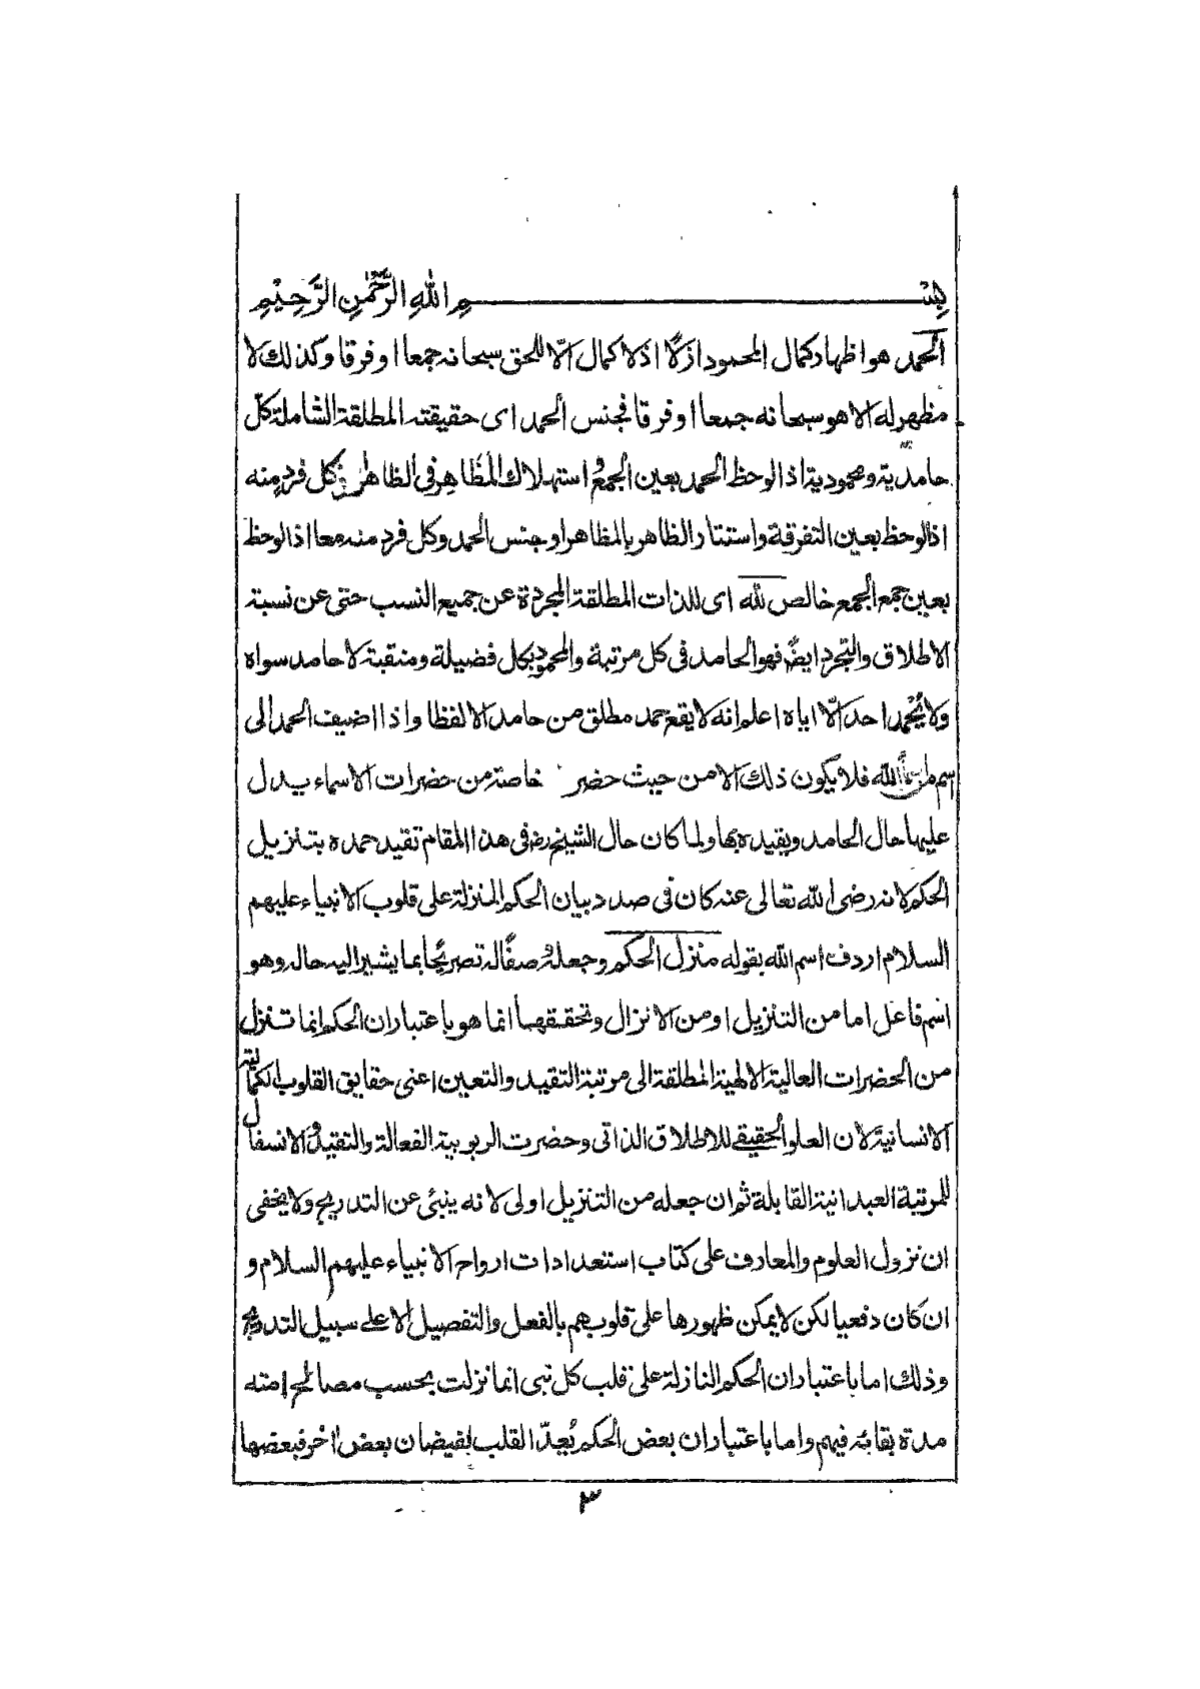 بِسْمِ اللهِ الرَّحْمٰنِ الرَّحِيْمِ
الحمد هو اظهار كمال المحمود ازلًا اذ لا كمال الّا للحق سبحانه جمعا او فرقا وكذلك لا
مظهر له الا هو سبحانه جمعا او فرقا فجنس الحمد اى حقيقته المطلقة الشاملة كلّ
حامدية ومحمودية اذا لوحظ الحمد بعين الجمع واستهلاك المظاهر فى الظاهر وكل فرد منه
اذا لوحظ بعين التفرقة واستتار الظاهر بالمظاهر او جنس الحمد وكل فرد منه معا اذا لوحظ
بعين جمع الجمع خالص لله اى للذات المطلقة المجردة عن جميع النسب حتى عن نسبة
الاطلاق والتجرد ايضً فهو الحامد فى كل مرتبة والمحمود بكل فضيلة ومنقبة لا حامد سواه
ولا يُحْمد احد الّا اياه اعلم انه لا يقع حمد مطلق من حامد الا لفظا واذا اضيف الحمد الى
اسم من الله فلا يكون ذلك الا من حيث حضر خاصة من حضرات الاسماء يدل
عليها حال الحامد ويقيده بها ولما كان حال الشيخ رض فى هذا المقام تقيد حمده بتنزيل
الحكم لانه رضى الله تعالى عنه كان فى صدد بيان الحكم المنزلة على قلوب الانبياء عليهم
السلام اردف اسم الله بقوله منزل الحكم وجعله وصفًا له تصريحًا بما يشير اليه حاله وهو
اسم فاعل اما من التنزيل او من الانزال وتحققهما انما هو باعتبار ان الحكم انما تنزل
من الحضرات العالية الالهية المطلقة الى مرتبة التقيد والتعين اعنى حقايق القلوب الكمالية
الانسانية لان العلو الحقيقے للاطلاق الذاتى وحضرت الربوبية الفعالة والتقيد والانسفال
للمرتبة العبدانية القابلة ثم ان جعله من التنزيل اولى لانه ينبئ عن التدريج ولا يخفى
ان نزول العلوم والمعارف على كتاب استعدادات ارواح الانبياء عليهم السلام و
ان كان دفعيا لكن لا يمكن ظهورها على قلوبهم بالفعل والتفصيل الا علے سبيل التدريج
وذلك اما باعتبار ان الحكم النازلة على قلب كل نبى انما نزلت بحسب مصالح امته
مدة بقائه فيهم واما باعتبار ان بعض الحكم يُعِدّ القلب لفيضان بعض اخر فبعضها
٣